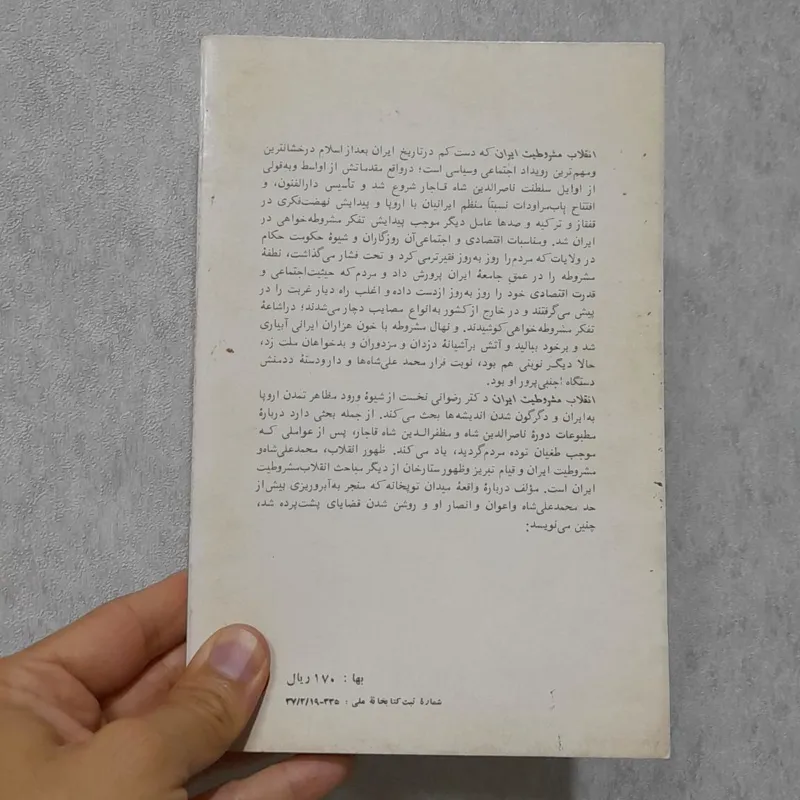 انقلاب مشروطیت ایران که دست کم درتاریخ ایران بعداز اسلام درخشانترین
ومهم‌ترین رویداد اجتماعی وسیاسی است؛ درواقع مقدماتش از اواسط وبه‌قولی
از اوایل سلطنت ناصرالدین شاه قاجار شروع شد و تأسیس دارالفنون، و
افتتاح باب‌مراودات نسبتاً منظم ایرانیان با اروپا و پیدایش نهضت‌فکری در
قفقاز و ترکیه و صدها عامل دیگر موجب پیدایش تفکر مشروطه‌خواهی در
ایران شد. ومناسبات اقتصادی و اجتماعی‌آن روزگاران و شیوهٔ حکومت حکام
در ولایات که مردم‌را روز به‌روز فقیرترمی‌کرد و تحت فشار می‌گذاشت، نطفهٔ
مشروطه را در عمق جامعهٔ ایران پرورش داد و مردم‌که حیثیت‌اجتماعی و
قدرت اقتصادی خود را روز به‌روز ازدست داده‌و اغلب راه دیار غربت را در
پیش می‌گرفتند و در خارج ازکشور به‌انواع مصایب دچار می‌شدند؛ دراشاعهٔ
تفکر مشروطه‌خواهی‌کوشیدند. و نهال مشروطه با خون هزاران ایرانی آبیاری
شد و برخود ببالید و آتش برآشیانهٔ دزدان و مزدوران و بدخواهان ملت زد،
حالا دیگر نوبتی هم بود، نوبت فرار محمد علی‌شاه‌ها و دارودستهٔ ددمنش
دستگاه اجنبی‌پرور او بود.
انقلاب مشروطیت ایران دکتر رضوانی نخست از شیوهٔ ورود مظاهر تمدن اروپا
به‌ایران و دگرگون شدن اندیشه‌ها بحث می‌کند. از جمله بحثی دارد دربارهٔ
مطبوعات دورهٔ ناصرالدین شاه و مظفرالدین شاه قاجار، پس از عواملی که
موجب طغیان توده مردم‌گردید، یاد می‌کند. ظهور انقلاب، محمدعلی‌شاه‌و
مشروطیت ایران و قیام تبریز وظهور ستارخان از دیگر مباحث انقلاب‌مشروطیت
ایران است. مؤلف دربارهٔ واقعهٔ میدان توپخانه که منجر به‌آبروریزی بیش‌از
حد محمدعلی‌شاه واعوان و انصار او و روشن شدن قضایای پشت‌پرده شد،
چنین می‌نویسد:
بها : ۱۷۰ ریال
شمارهٔ ثبت کتابخانهٔ ملی : ۳۳۵-۳۷/۲/۱۹